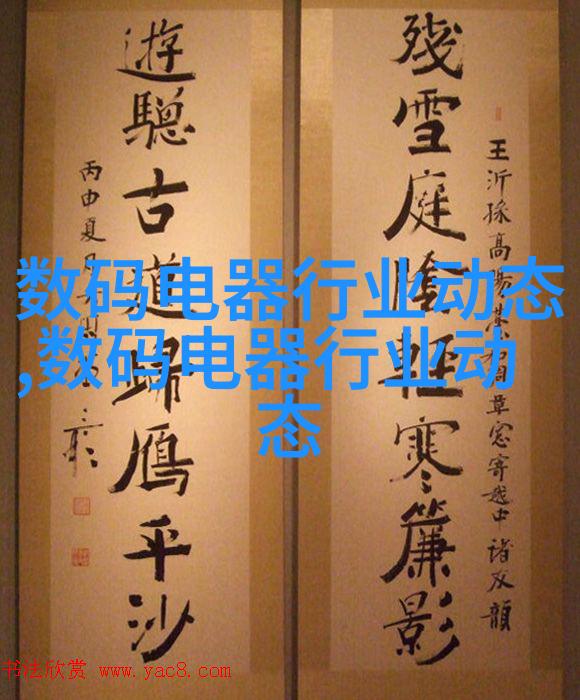 殘雪庭陰輕寒簾影
王沂孫高陽臺草窓寄越中諸友韻
遊驄古道歸鴈平沙
丙申夏月
数码电器行业动态
,数码电器行业动
态
书法欣赏 www.yac8.com